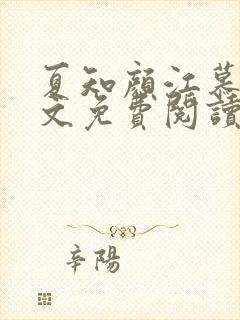 夏知顏江慕
文免費閱讀
辛陽